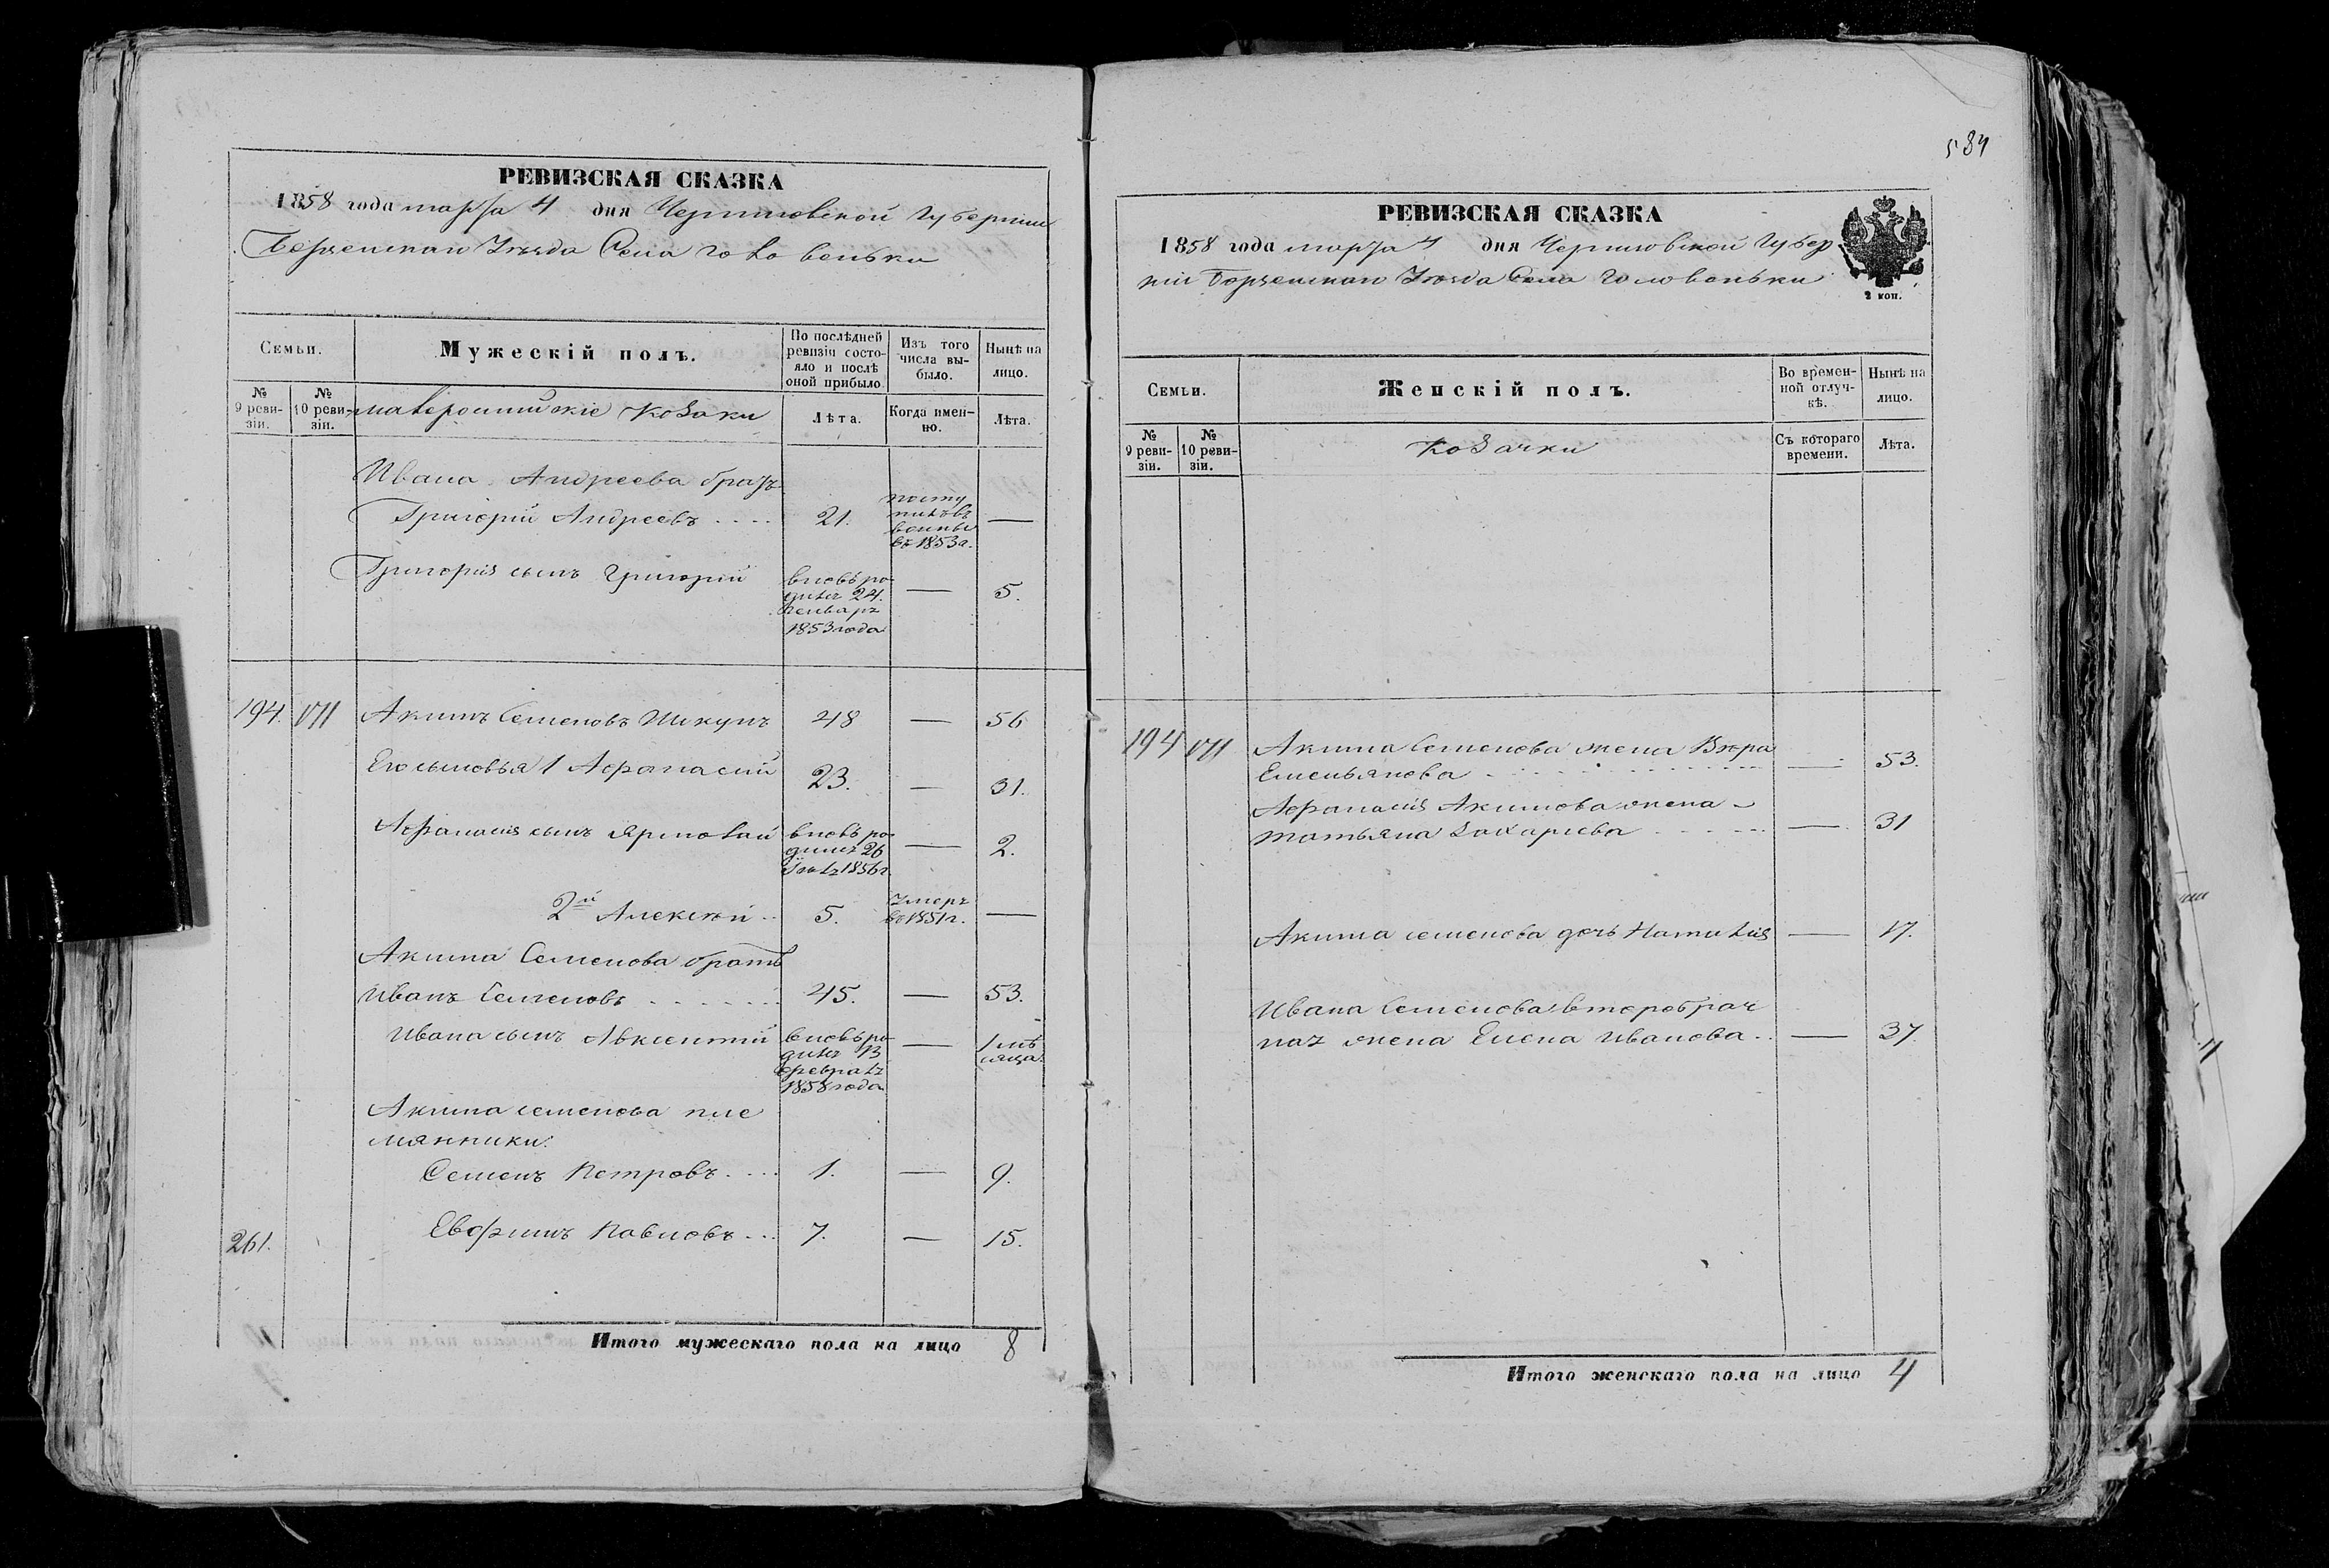 584
РЕВИЗСКАЯ СКАЗКА
1858 года марта 4 дня Черниговской Губернии
Борзенскаго Уѣзда Села Головеньки
Семьи.
Мужескій полъ.
По послѣдней ревизіи состояло и послѣ оной прибыло
Изъ того числа выбыло.
Нынѣ на лицо.
№ 9 ревизіи.
№ 10 ревизіи.
малероссийскіе Козаки
Лѣта.
Когда именно.
Лѣта.
Ивана Андреева братъ
Григорій Андреевъ . . . . 21. въ 1853 г. —
Григорія сынъ Григорій вновь родился 24. Генваря 1853 года — 5.
194. Акимъ Семеновъ Шикунъ 48 — 56
Его сыновья 1 Афанасий 23. — 31.
Афанасія сынъ Ярмолай вновь родился 26 1856 г. — 2.
2й Алексѣй . . 5. Умеръ въ 1851 г. —
Акима Семенова братъ
Иванъ Семеновъ . . . . . . . 45. — 53.
Ивана сынъ Авксентий вновь родился 13 февраля 1858 года — 1 мѣсяца.
Акима семенова пле
мянники:
Семенъ Петровъ . . . . 1. — 9.
261. Евфимъ Павловъ . . . 7. — 15.
Итого мужескаго пола на лицо 8
РЕВИЗСКАЯ СКАЗКА
1858 года марта 4 дня Черниговской Губер
ніи Борзенскаго Уѣзда Села Головеньки
2 коп.
Семьи.
Женскій полъ.
Во временной отлучкѣ.
Нынѣ на лицо.
№ 9 ревизіи.
№ 10 ревизіи.
Козачки
Съ котораго времени.
Лѣта.
194 Акима Семенова жена Вѣра
Емельянова . . . . . . . . . . . — 53.
Афанасія Акимова жена
татьяна Захариева . . . . . — 31
Акима семенова дочь Наталія — 17.
Ивана Семенова второбрач
ная жена Елена Иванова . . — 37.
Итого женскаго пола на лицо 4